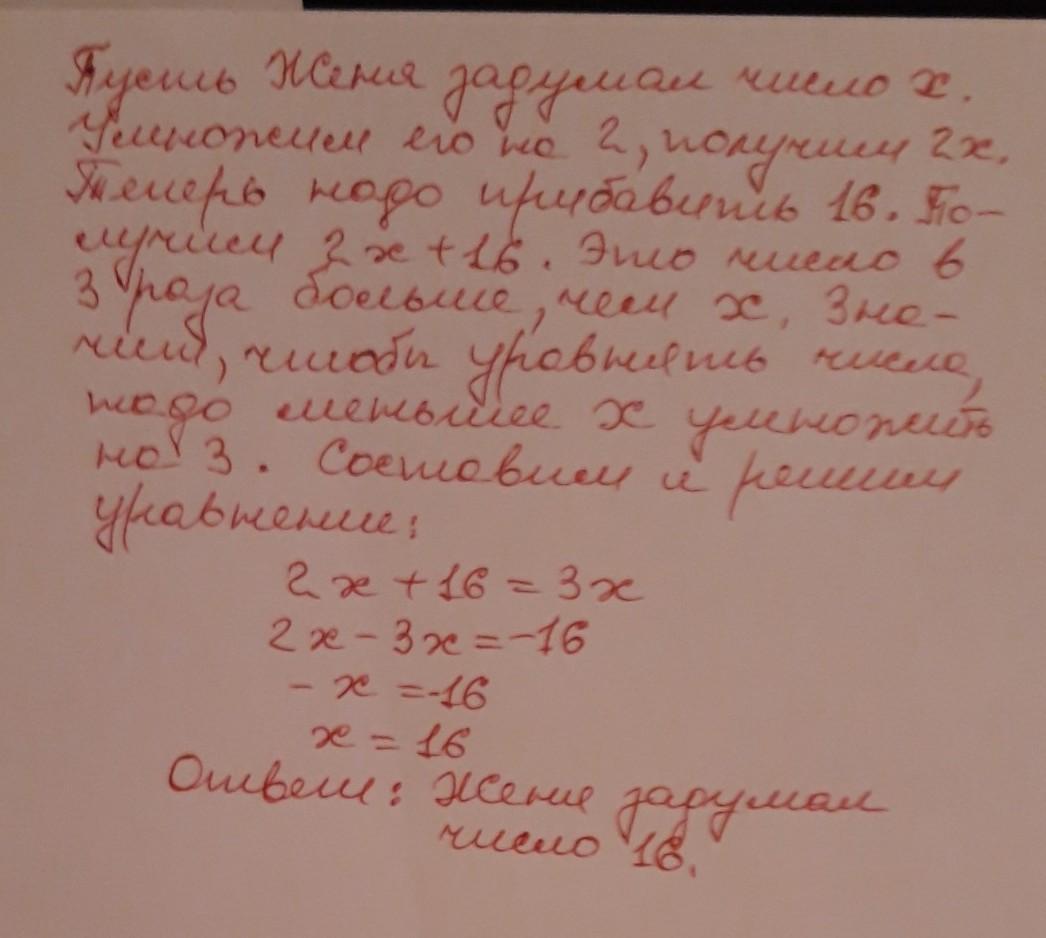 Пусть Женя задумал число x.
Умножим его на 2, получим 2x.
Теперь надо прибавить 16. По-
лучим 2x+16. Это число в
3 раза больше, чем x. Зна-
чит, чтобы уравнять числа,
надо меньшее x умножить
на 3. Составим и решим
уравнение:
2x+16=3x
2x-3x=-16
-x=-16
x=16
Ответ: Женя задумал
число 16.